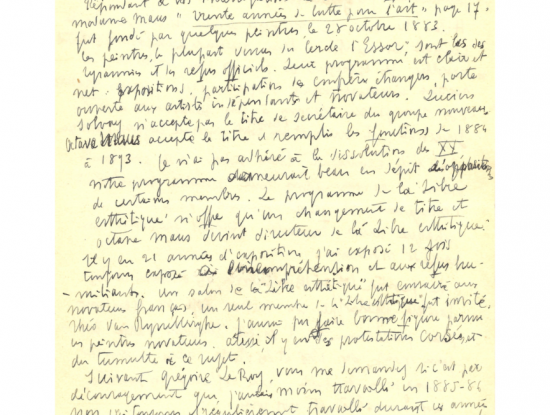 madame Maus "trente années de lutte pour l'art" page 17.
fut fondé par quelques peintres, le 28 octobre 1883.
les peintres, la plupart venus du cercle l'Essor, sont las des
tyrannies et des refus officiels. Leur programme est clair et
net. expositions, participation des confrères étrangers, porte
ouverte aux artistes indépendants et novateurs. Lucien
Solvay n'accepte pas le titre de secrétaire du groupe nouveau
Octave Maus accepte le titre et remplit les fonctions de 1884
à 1893. Je n'ai pas adhéré à la dissolution des XX
notre programme demeurait beau en dépit d'opposition
de certains membres. Le programme de la Libre
esthétique n'offre qu'un changement de titre et
octave maus devint directeur de la Libre esthétique.
il y eu 21 années d'exposition, j'ai exposé 12 fois
toujours exposé à l'incompréhension et aux refus hu-
-miliants. un salon de la Libre esthétique fut consacré aux
novateurs français, un seul membre de la Libre esthétique fut invité,
théo Van Rysselberghe. J'aurais pu faire bonne figure parmi
ces peintres novateurs. il y eu des protestations
du tumulte à ce sujet.
Suivant Grégoire Le Roy, vous me demandez si c'est par
découragement que j'aurais moins travaillé en 1885-86
non j'ai toujours régulièrement travaillé durant ces années